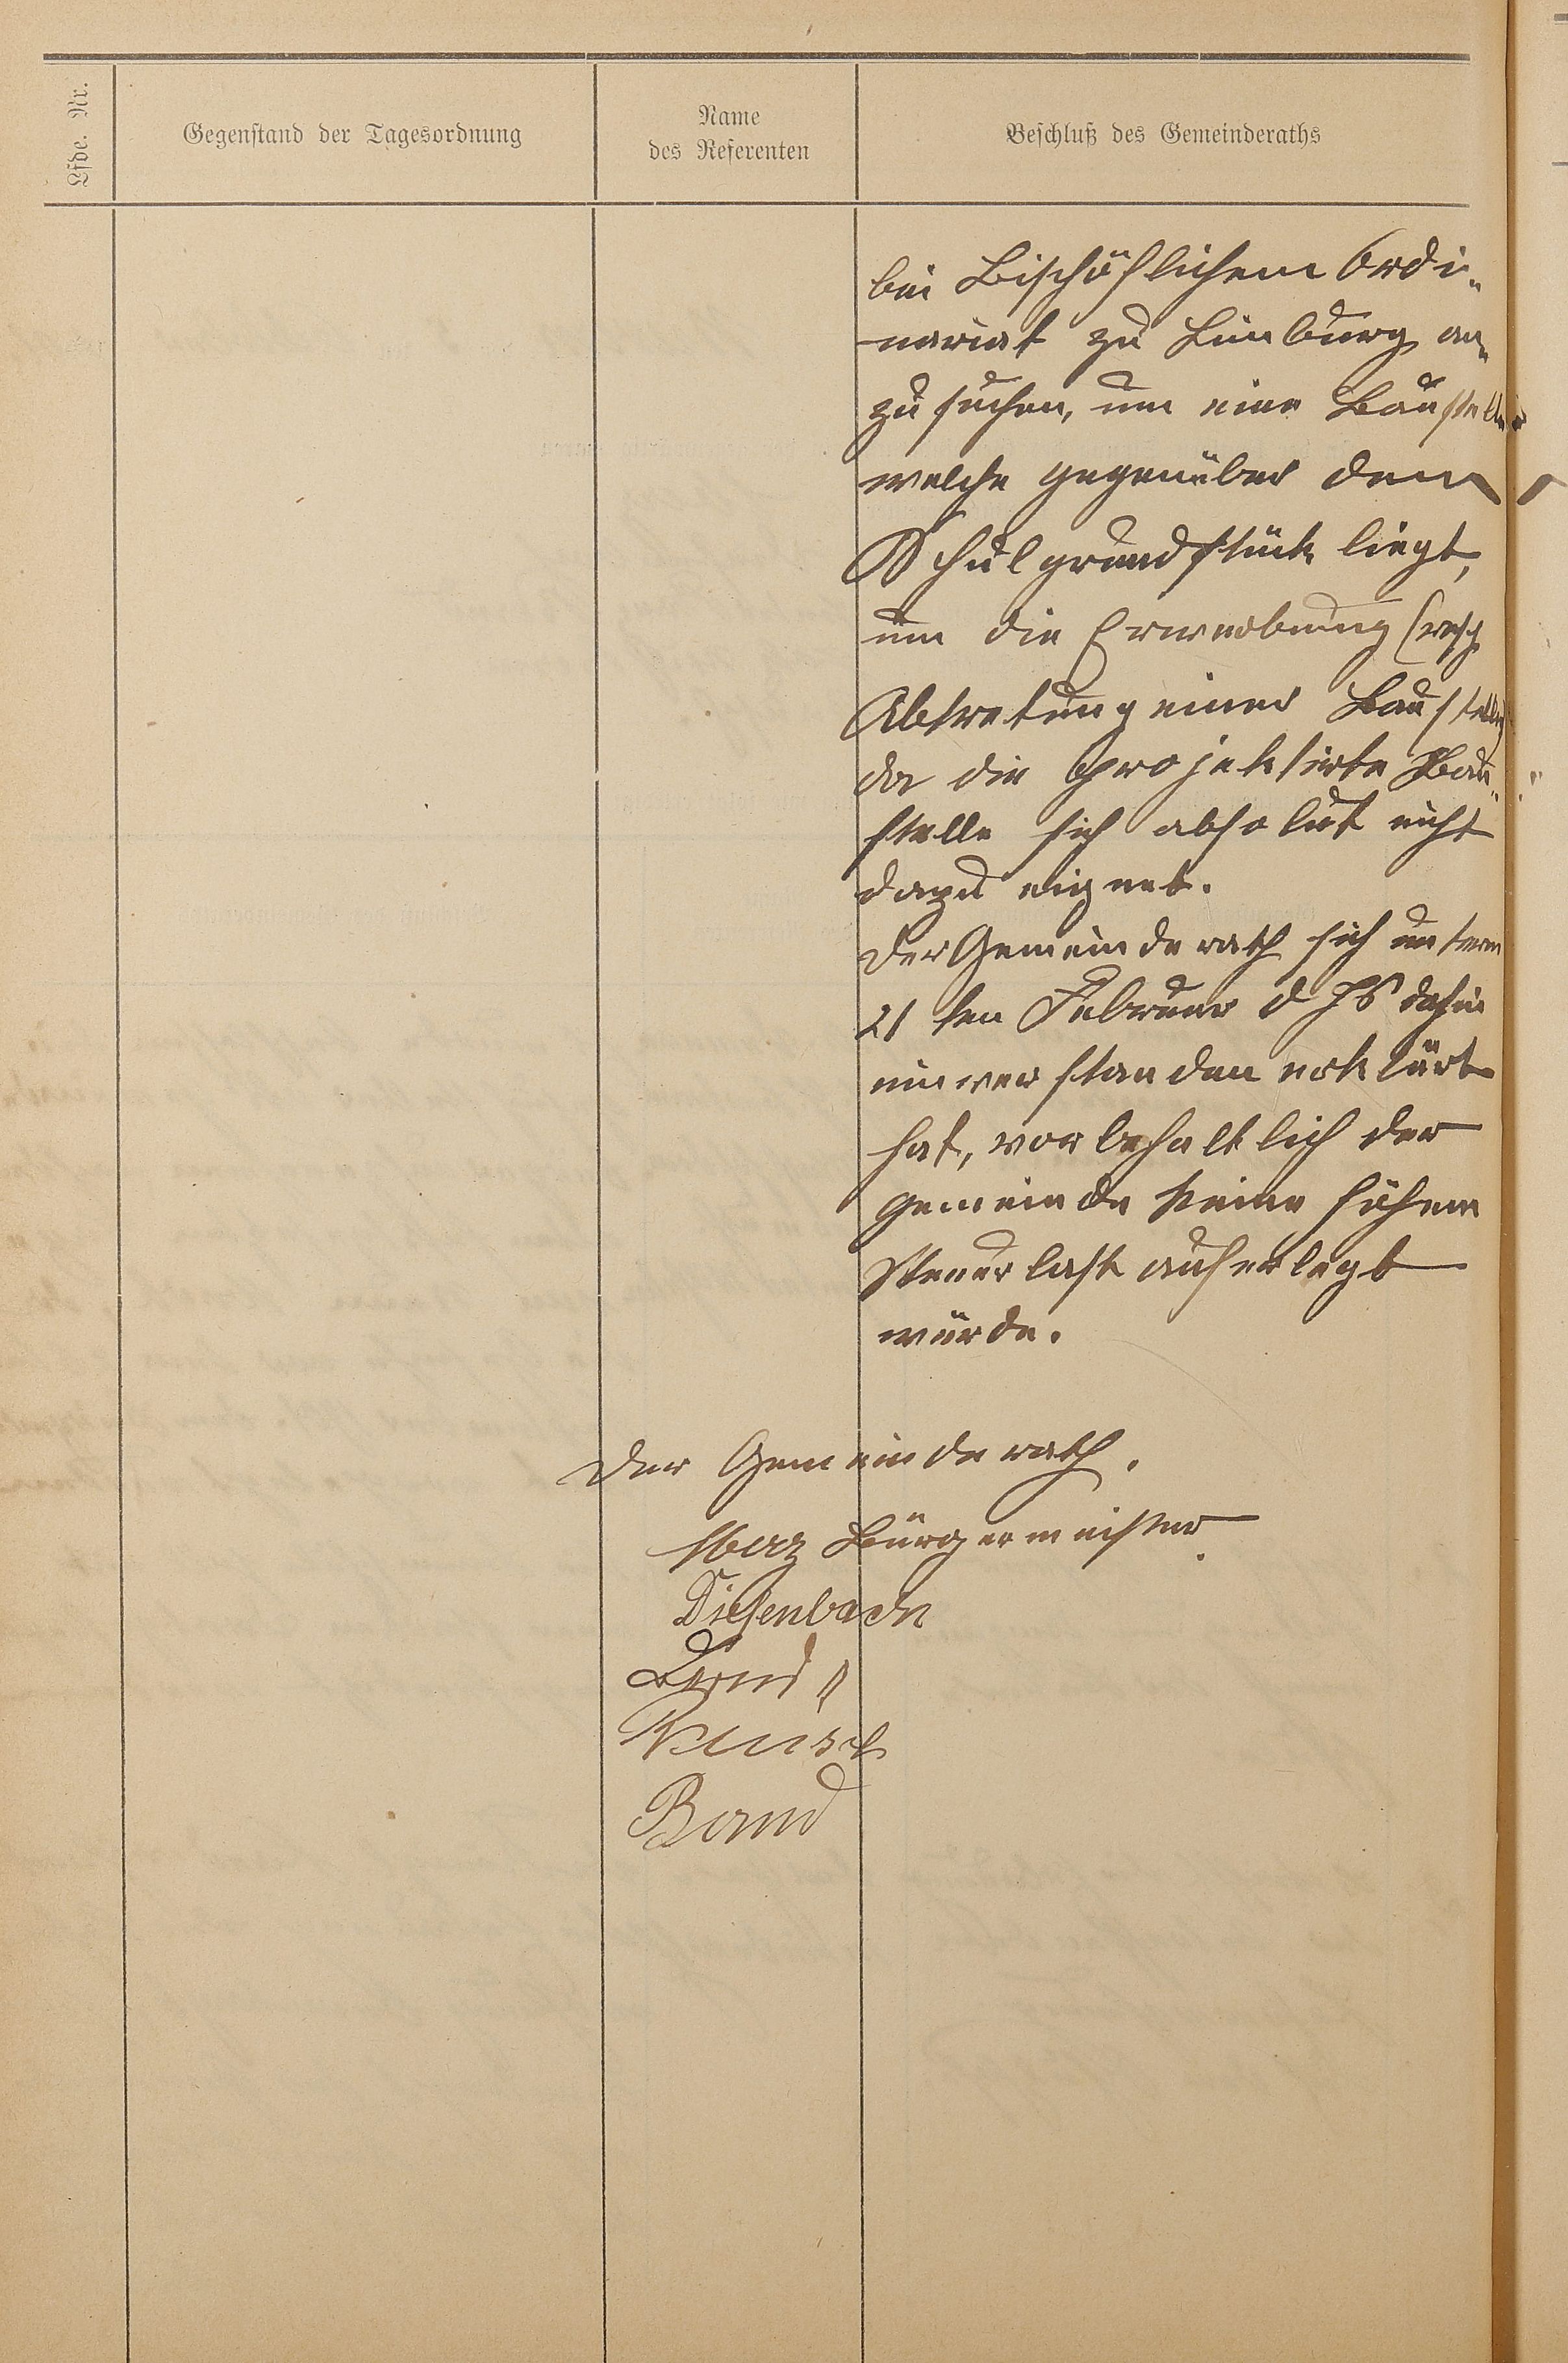 Lfde. Nr.
Gegenstand der Tagesordnung
Name
des Referenten
Beschluß des Gemeinderaths
bei Bischöflichem Ordi-
nariat zu Limburg an-
zu suchen, um eine Baustelle
welche gegenüber dem
Schulgrundstück liegt,
um die Erwerbung (resp
Abtretung einer Baustelle)
da die projektirte Bau-
stelle sich absolut nicht
dazu eignet.
Der Gemeinderath sich unterm
21ten Februar d Js dahin
einverstanden erklärt
hat, vorbehaltlich der
Gemeinde keine höhere
Steuerlast auferlegt
würde.
Der Gemeinderath.
Bürgermeister.
Diefenbach
Reusch
Band